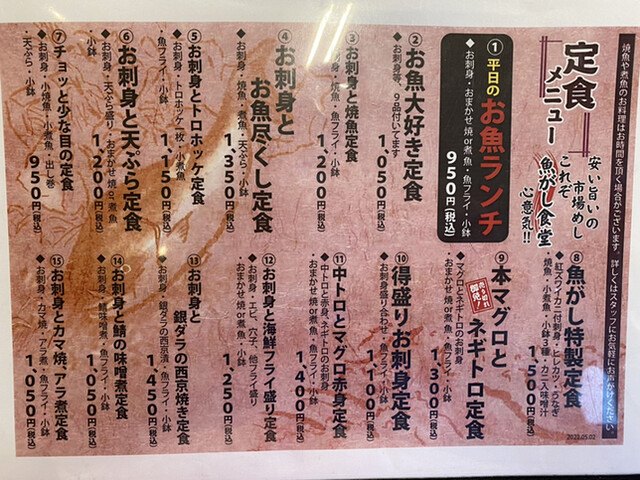 焼魚や煮魚のお料理はお時間を頂く場合がございます。詳しくはスタッフにお気軽にお声がけください。
定食
メニュー
安い旨いの
市場めし
これぞ
魚がし食堂
心意気!!
①平日のお魚ランチ
◆お刺身・おまかせ 焼or煮魚・魚フライ・小鉢
950円(税込)
②お魚大好き定食
◆お刺身等、9品付いてます
1,050円(税込)
③お刺身と焼魚定食
◆お刺身・焼魚・魚フライ・小鉢
1,200円(税込)
④お刺身と
お魚尽くし定食
◆お刺身・焼魚・煮魚・天ぷら・小鉢
1,350円(税込)
⑤お刺身とトロホッケ定食
◆お刺身・トロホッケ一枚・小煮魚
・魚フライ・小鉢
1,150円(税込)
⑥お刺身と天ぷら定食
◆お刺身・天ぷら盛り・おまかせ 焼or煮魚
・小鉢
1,200円(税込)
⑦チョッと少な目の定食
◆お刺身・小焼魚・小煮魚・出し巻
・天ぷら・小鉢
950円(税込)
⑧魚がし特製定食
◆紅ズワイカニ付刺身・ヒレカツ・うなぎ
・焼魚・小煮魚・小鉢3種・カニ入味噌汁
1,500円(税込)
⑨本マグロと
ネギトロ定食
売り切れ
御免!
◆マグロとネギトロのお刺身
・おまかせ 焼or煮魚・魚フライ・小鉢
1,300円(税込)
⑩得盛りお刺身定食
◆お刺身盛り合わせ・魚フライ・小鉢
1,100円(税込)
⑪中トロとマグロ赤身定食
◆中トロと赤身、ネギトロのお刺身
・おまかせ 焼or煮魚・魚フライ・小鉢
1,400円(税込)
⑫お刺身と海鮮フライ盛り定食
◆お刺身・エビ、穴子、他フライ盛り
・おまかせ 焼or煮魚・小鉢
1,250円(税込)
⑬お刺身と
銀ダラの西京焼き定食
◆お刺身・銀ダラの西京漬・魚フライ・小鉢
1,450円(税込)
⑭お刺身と鯖の味噌煮定食
◆お刺身・鯖味噌煮・魚フライ・小鉢
1,050円(税込)
⑮お刺身とカマ焼、アラ煮定食
◆お刺身・カマ焼・アラ煮・魚フライ・小鉢
1,050円(税込)
2023.03.02